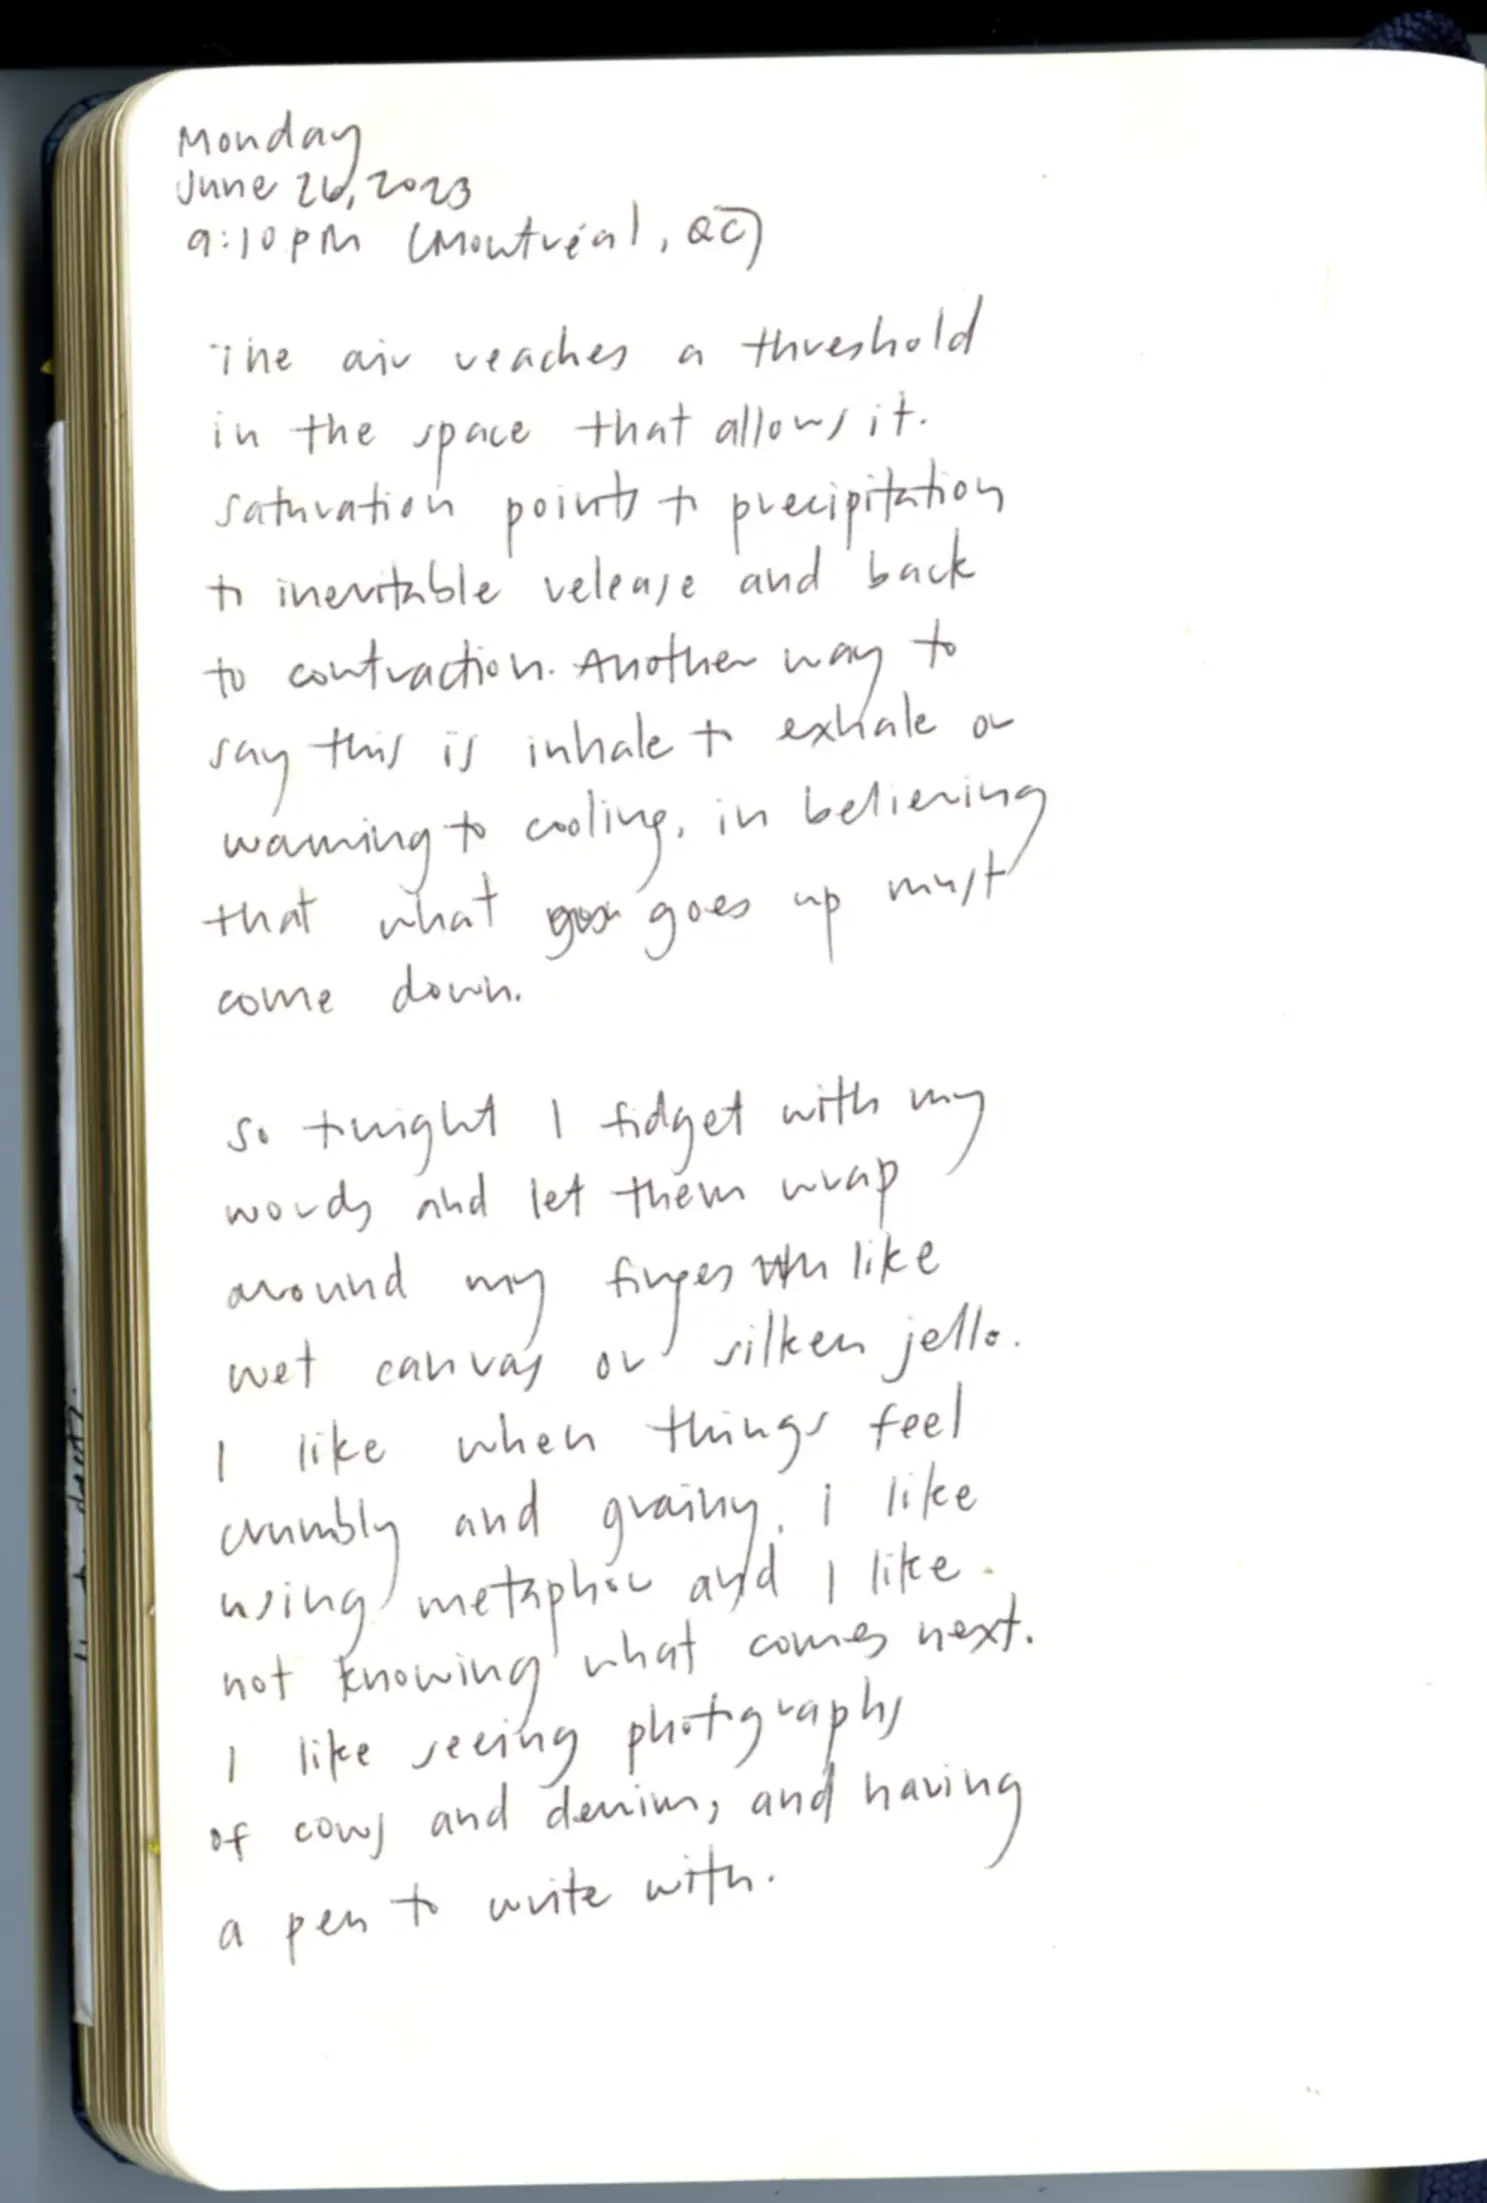 Monday
June 26, 2023
9:10 PM (Montréal, QC)
The air reaches a threshold
in the space that allows it.
saturation points to precipitation
to inevitable release and back
to contraction. Another way to
say this is inhale to exhale or
warming to cooling, in believing
that what goes up must
come down.
So tonight I fidget with my
words and let them wrap
around my fingers like
wet canvas or silken jello.
I like when things feel
crumbly and grainy. i like
using metaphor and I like
not knowing what comes next.
I like seeing photographs
of cows and denim, and having
a pen to write with.